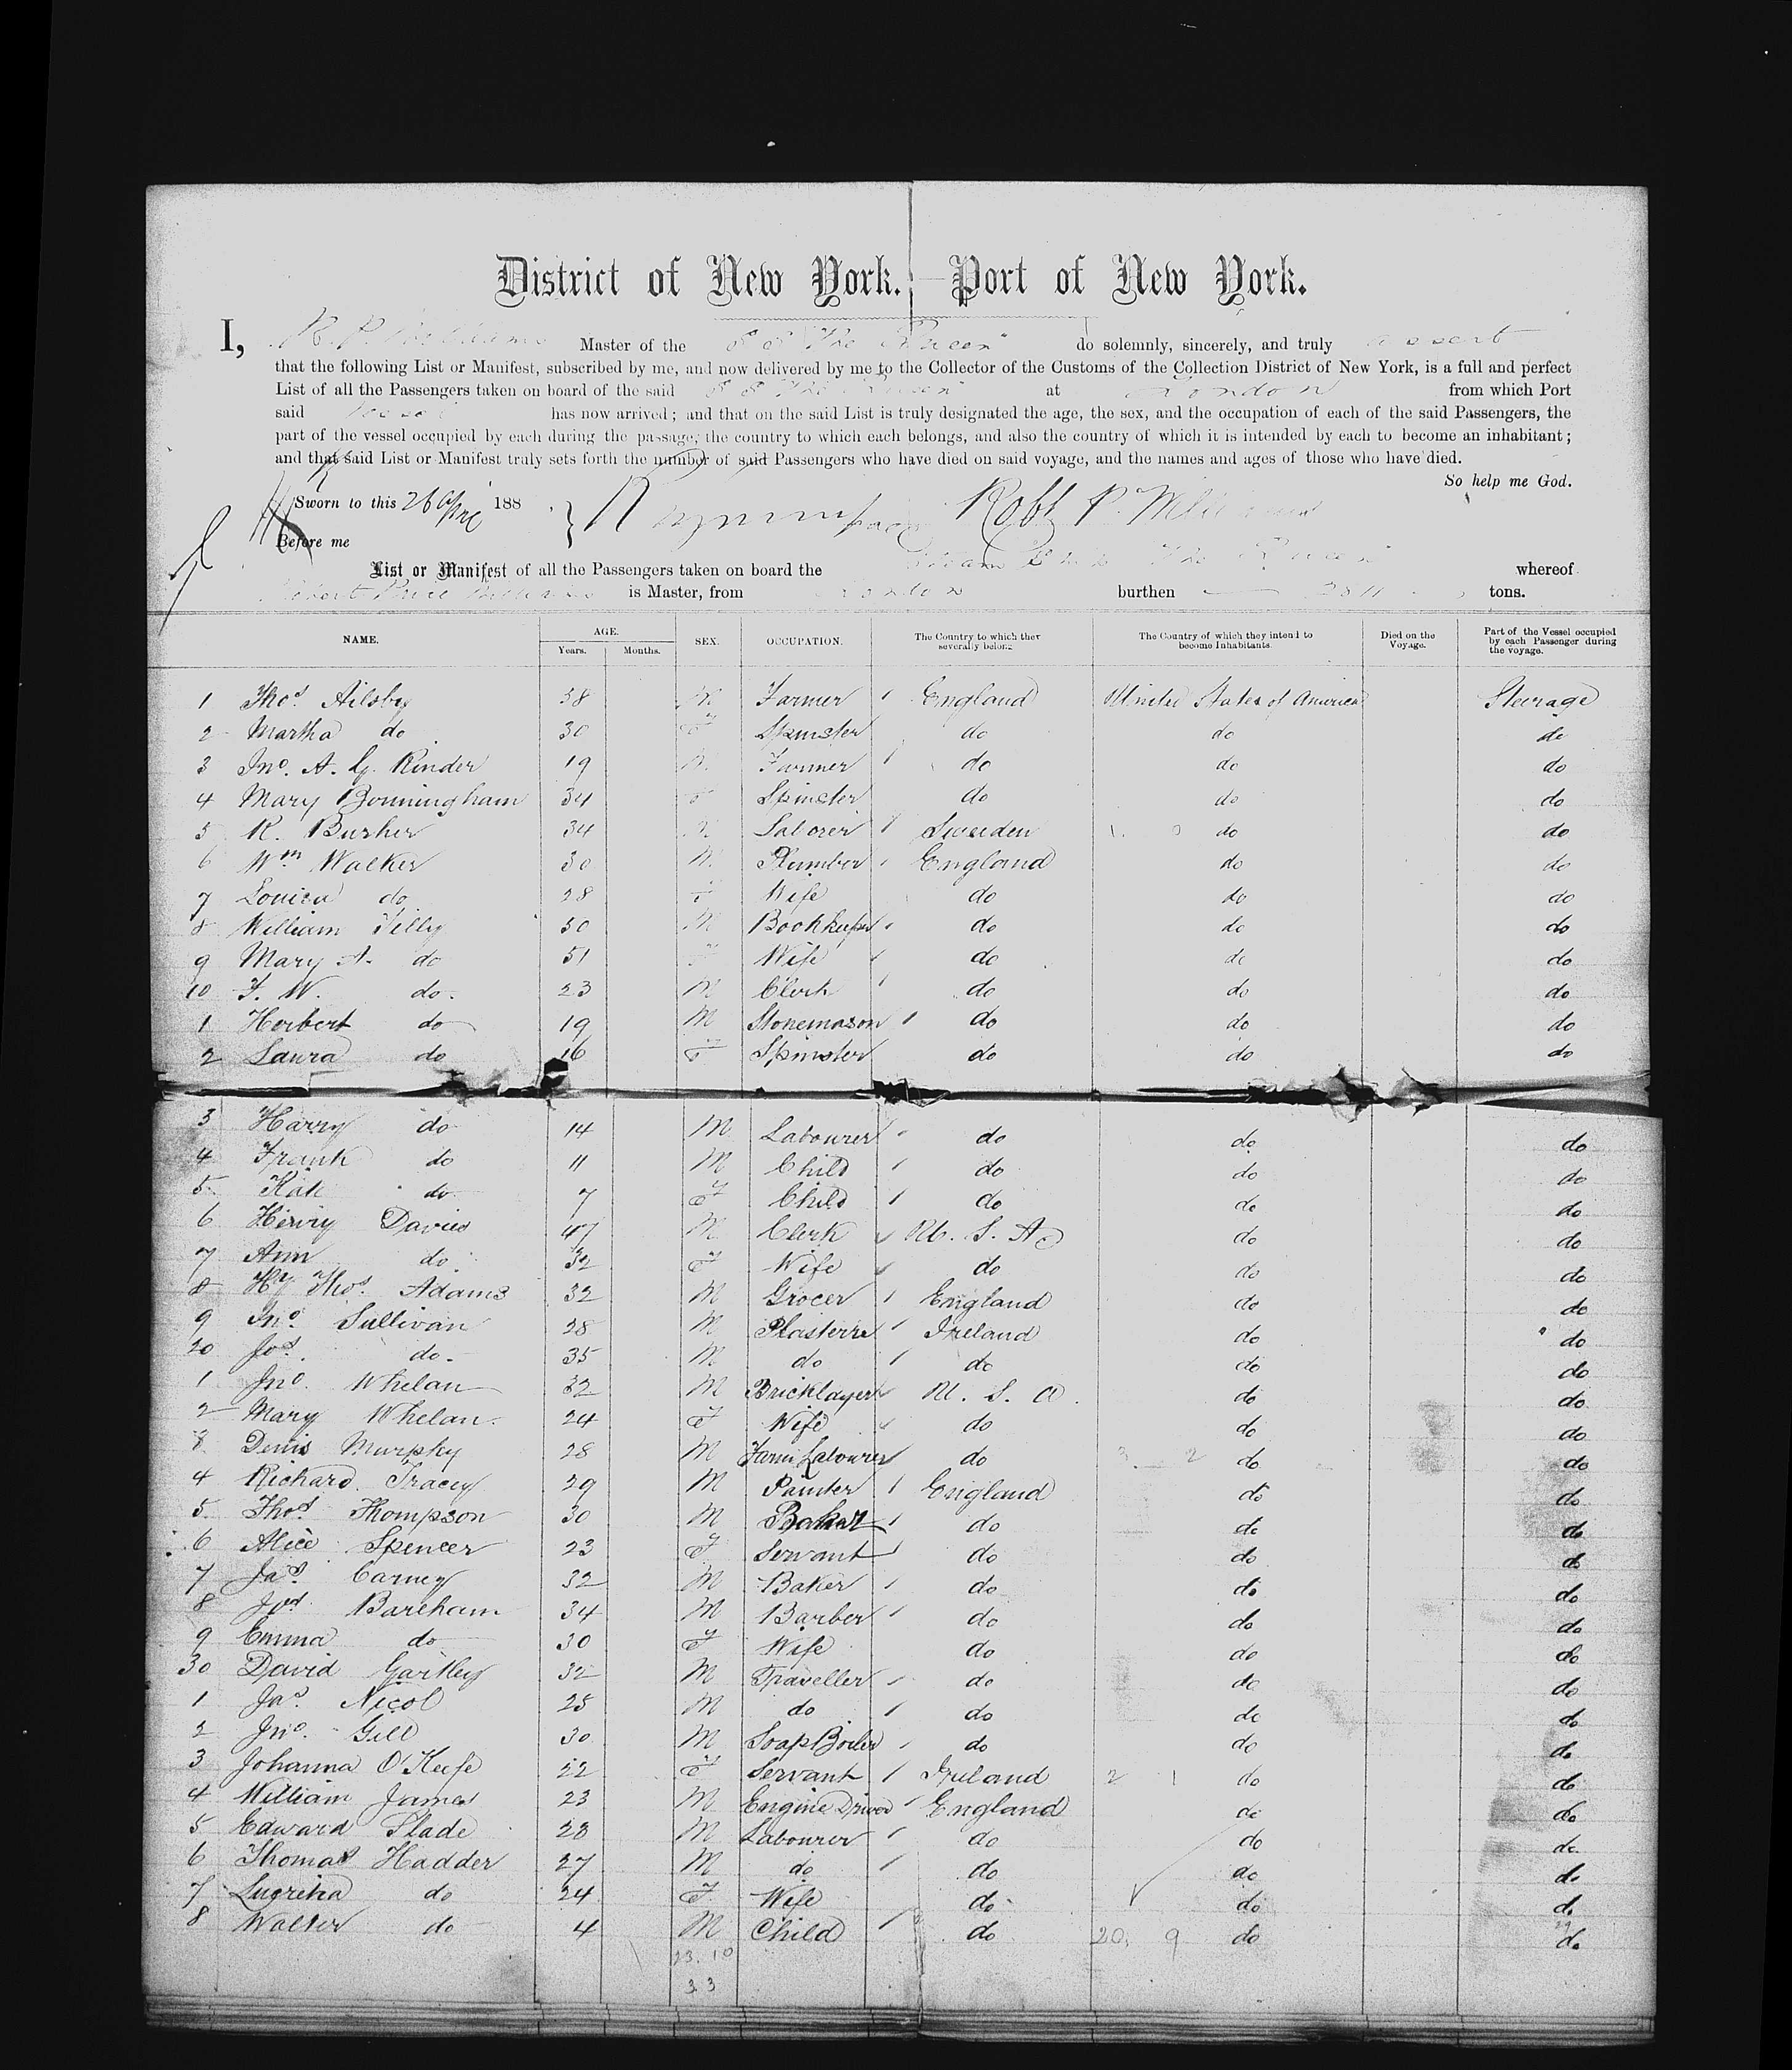 District of New York. Port of New York.
I, R. P. Williams Master of the S S "The Queen" do solemnly, sincerely, and truly assert
that the following List or Manifest, subscribed by me, and now delivered by me to the Collector of the Customs of the Collection District of New York, is a full and perfect
List of all the Passengers taken on board of the said S S "The Queen" at London from which Port
said Vessel has now arrived; and that on the said List is truly designated the age, the sex, and the occupation of each of the said Passengers, the
part of the vessel occupied by each during the passage, the country to which each belongs, and also the country of which it is intended by each to become an inhabitant;
and that said List or Manifest truly sets forth the number of said Passengers who have died on said voyage, and the names and ages of those who have died.
So help me God.
Sworn to this 26 188
Before me
List or Manifest of all the Passengers taken on board the Steam Ship "The Queen" whereof
Robert Williams is Master, from London burthen tons.
NAME. AGE. SEX. OCCUPATION. The Country to which they severally belong The Country of which they intend to become Inhabitants. Died on the Voyage. Part of the Vessel occupied by each Passenger during the voyage.
Years. Months.
1 Thos. Ailsby 38 M. Farmer England United States of America Steerage
2 Martha do 30 F Spinster do do do
3 Jno. A. G. Rinder 19 M. Farmer do do do
4 Mary Bonningham 34 F Spinster do do do
5 R. Busher 34 M Laborer Sweden do do
6 Wm Walker 30 M. Plumber England do do
7 Louisa do 28 F Wife do do do
8 William Tilly 50 M Bookkeeper do do do
9 Mary A. do 51 F Wife do do do
10 F. W. do. 23 M Clerk do do do
1 Herbert do 19 M Stonemason do do do
2 Laura do 16 F Spinster do do do
3 Harry do 14 M Labourer do do do
4 Frank do 11 M Child do do do
5 Kate do 7 F Child do do do
6 Henry Davies 47 M Clerk U. S. A do do
7 Ann do 32 F Wife do do do
8 Hy Thos. Adams 32 M Grocer England do do
9 Jno. Sullivan 28 M Plasterer Ireland do do
20 Jos. do. 35 M do do do do
1 Jno. Whelan 32 M Bricklayer U. S. A. do do
2 Mary Whelan. 24 F Wife do do do
3 Denis Murphy 28 M Farm Labourer do do do
4 Richard Tracey 29 M Painter England do do
5 Thos. Thompson 30 M Baker do do do
6 Alice Spencer 23 F Servant do do do
7 Jas. Carney 32 M Baker do do do
8 Jos. Bareham 34 M Barber do do do
9 Emma do 30 F Wife do do do
30 David Gartley 32 M Traveller do do do
1 Jas. Nicol 25 M do do do do
2 Jno. Gill 30 M Soap Boiler do do do
3 Johanna O'Keefe 22 F Servant Ireland 2 1 do do
4 William James 23 M Engine Driver England do do
5 Edward Slade 28 M Labourer do do do
6 Thomas Hadder 27 M do do do do
7 do 24 F Wife do do do
8 Walter do 4 M Child do 20 9 do do
23. 10
33